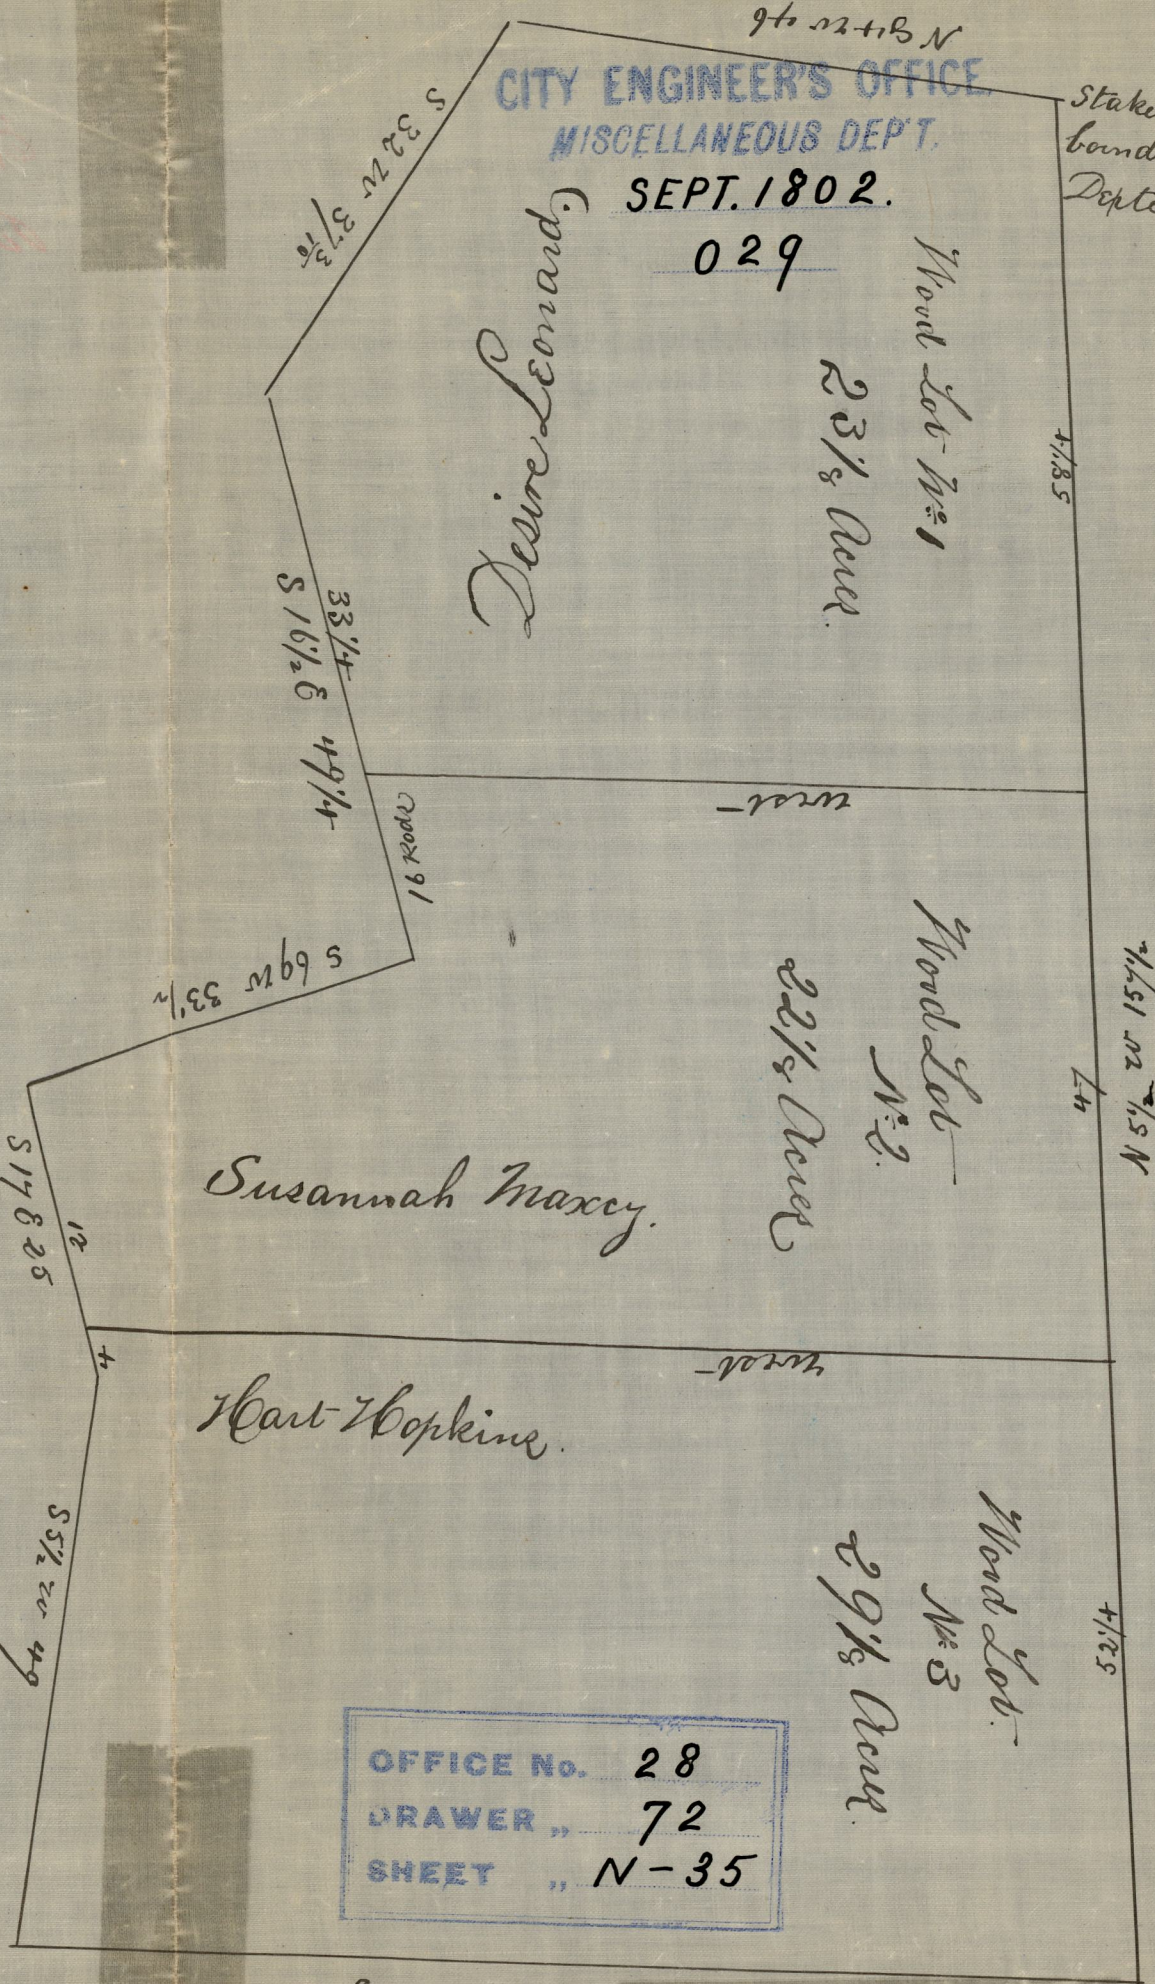 CITY ENGINEER'S OFFICE.
MISCELLANEOUS DEP'T.
SEPT. 1802.
029
Stake
bound
S 32 W 37 3/10
Desire Leonard
Wood Lot No 1
23 1/8 Acres.
58 1/4
33 1/4
S 16 1/2 E 49 1/4
16 Rods
west
S 69 W 33 1/2
Wood Lot
No 2.
22 1/8 Acres
47
N 5 1/2 W 157 1/2
Susannah Maxcy.
12
S 17 E 25
4
west
Hart Hopkins.
S 5 1/2 W 49
Wood Lot.
No 3
29 1/8 Acres.
52 1/4
OFFICE No. 28
DRAWER „ 72
SHEET „ N-35